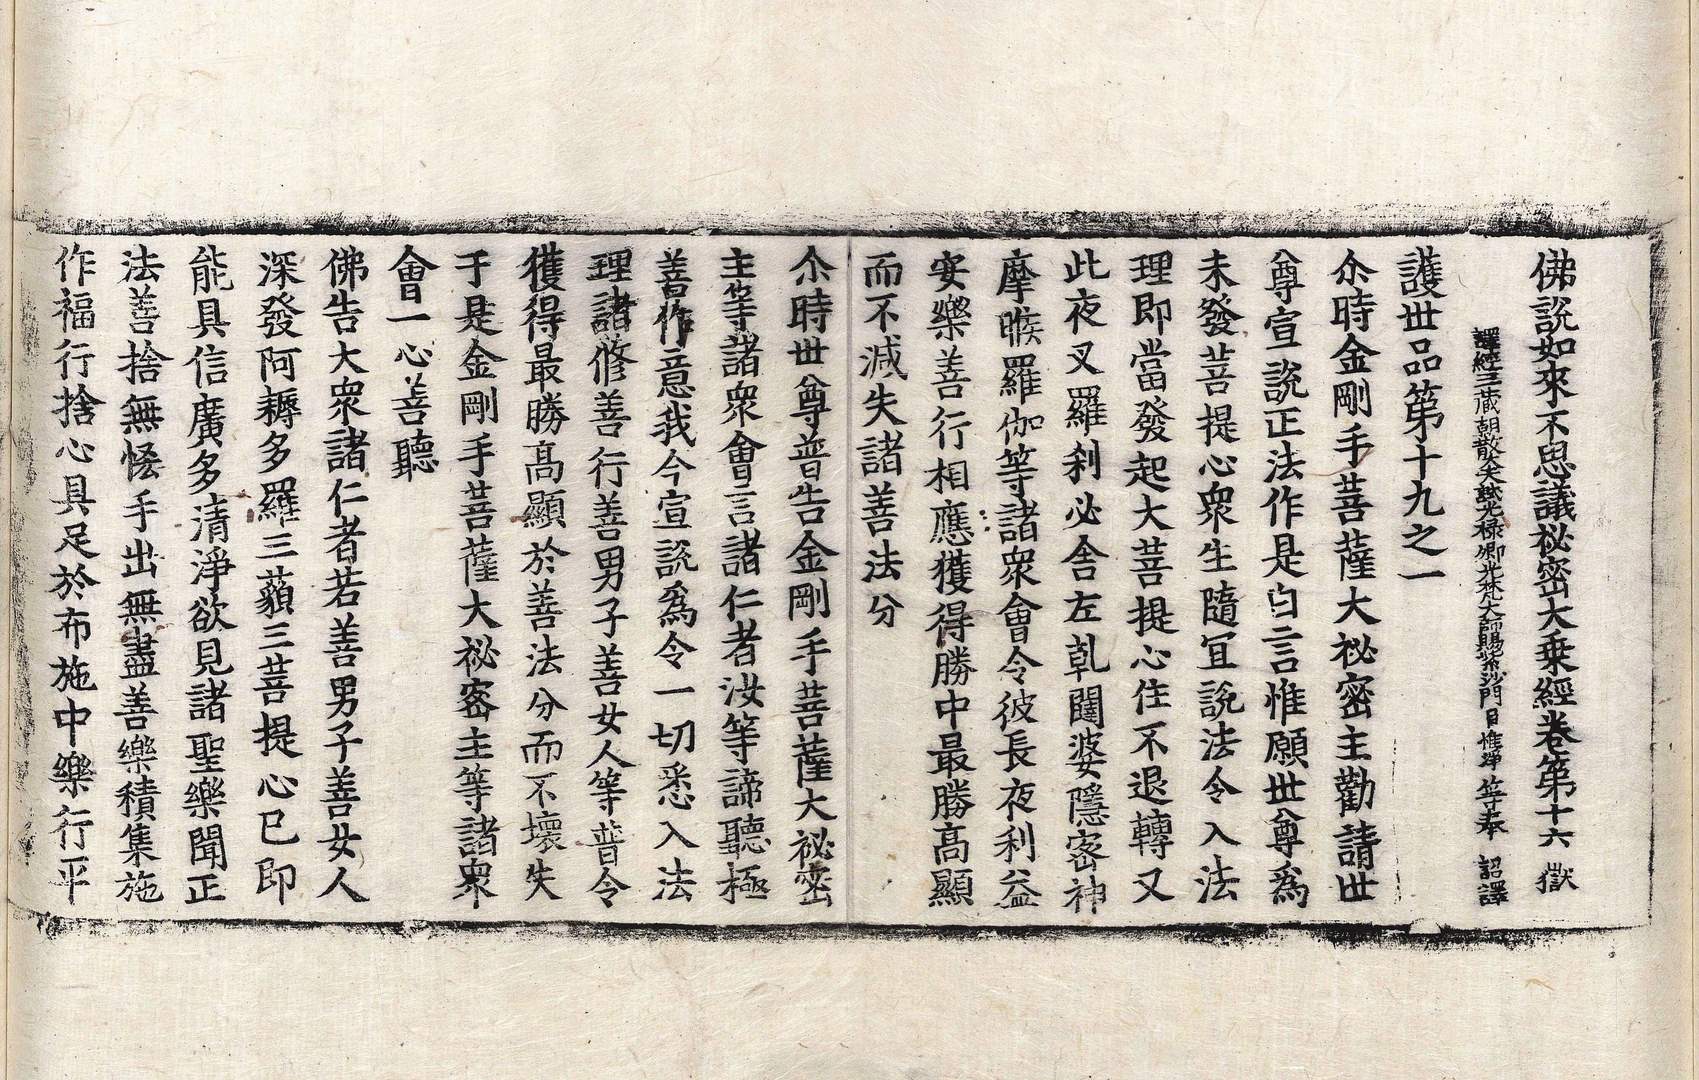 佛說如來不思議祕密大乗經卷第十六 獄
譯經三藏朝散大夫試光祿卿光梵大師賜紫沙門臣惟淨等奉 詔譯
護世品第十九之一
尒時金剛手菩薩大祕密主勸請世
尊宣說正法作是白言惟願世尊爲
未發菩提心衆生隨冝說法令入法
理即當發起大菩提心住不退轉又
此夜叉羅刹必舍左乹闥婆隱密神
摩睺羅伽等諸衆會令彼長夜利益
安樂善行相應獲得勝中最勝高顯
而不減失諸善法分
尒時世尊普告金剛手菩薩大祕密
主等諸衆會言諸仁者汝等諦聽極
善作意我今宣說爲令一切悉入法
理諸修善行善男子善女人等普令
獲得最勝高顯於善法分而不壞失
于是金剛手菩薩大祕密主等諸衆
會一心善聽
佛告大衆諸仁者若善男子善女人
深發阿耨多羅三藐三菩提心已即
能具信廣多清淨欲見諸聖樂聞正
法善捨無恡手出無盡善樂積集施
作福行捨心具足於布施中樂行平